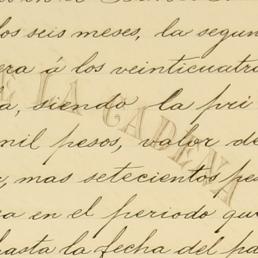 los seis meses, la segun
era á los veinticuatro
a, siendo la pri
mil pesos, valor de
, mas setecientos pes
ca en el periodo que
hasta la fecha del pa
DE LA CADENA